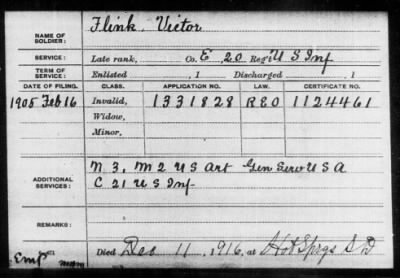 NAME OF SOLDIER: Flink, Victor
SERVICE: Late rank, Co. E 20 Reg't U S Inf
TERM OF SERVICE: Enlisted , 1 Discharged , 1
DATE OF FILING. CLASS. APPLICATION NO. LAW. CERTIFICATE NO.
1905 Feb 16 Invalid, 1331828 R&O 1124461
Widow,
Minor,
ADDITIONAL SERVICES: N 3, M 2 U S Art Gen Serv U S A
C 21 U S Inf
REMARKS:
Died Dec 11, 1916, at Hot Sprgs S D